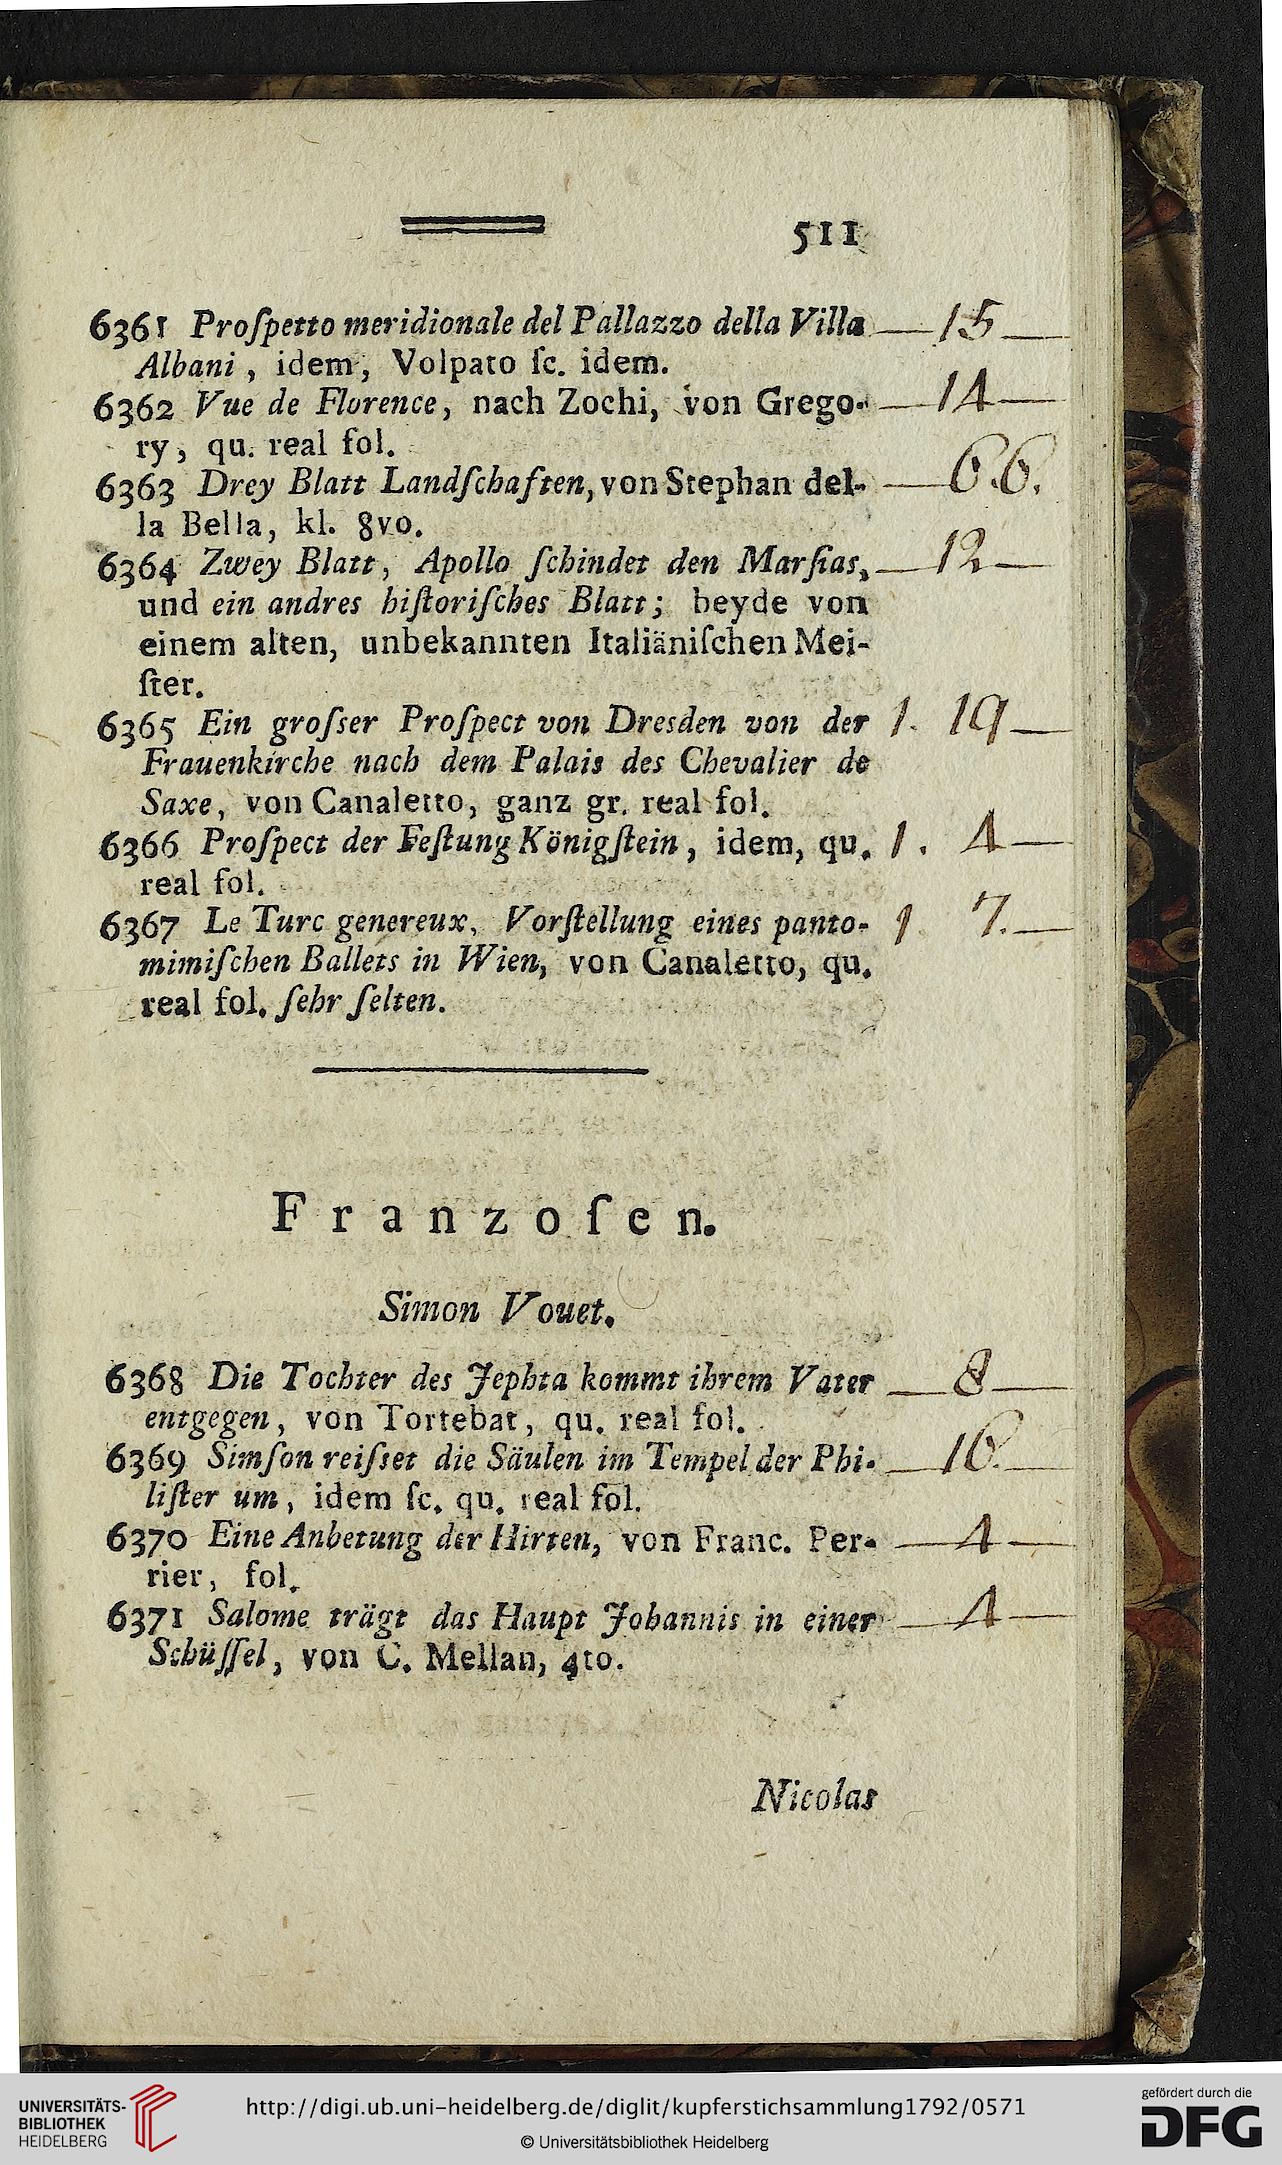 511
6361 Proſpetto meridionale del Pallazzo della Villa — 15 —
Albani, idem, Volpato ſc. idem.
6362 Vue de Florence, nach Zochi, von Grego- — 14 —
ry, qu. real fol.
6363 Drey Blatt Landſchaften, von Stephan del- — 6.6.
la Bella, kl. 8vo.
6364 Zwey Blatt, Apollo ſchindet den Marſias, — 12 —
und ein andres hiſtoriſches Blatt; beyde von
einem alten, unbekannten Italiäniſchen Mei-
ſter.
6365 Ein groſser Proſpect von Dresden von der 1. 19 —
Frauenkirche nach dem Palais des Chevalier de
Saxe, von Canaletto, ganz gr. real fol.
6366 Proſpect der Feſtung Königſtein, idem, qu. 1. 4 —
real fol.
6367 Le Turc genereux, Vorſtellung eines panto- 1 7. —
mimiſchen Ballets in Wien, von Canaletto, qu.
real fol. ſehr ſelten.
Franzoſen.
Simon Vouet.
6368 Die Tochter des Jephta kommt ihrem Vater — 8 —
entgegen, von Tortebat, qu. real fol.
6369 Simſon reiſset die Säulen im Tempel der Phi- — 16. —
liſter um, idem ſc. qu. real fol.
6370 Eine Anbetung der Hirten, von Franc. Per- — 4 —
rier, fol.
6371 Salome trägt das Haupt Johannis in einer — 4 —
Schüſſel, von C. Mellan, 4to.
Nicolas
UNIVERSITÄTS-
BIBLIOTHEK
HEIDELBERG
http://digi.ub.uni-heidelberg.de/diglit/kupferstichsammlung1792/0571
© Universitätsbibliothek Heidelberg
gefördert durch die
DFG